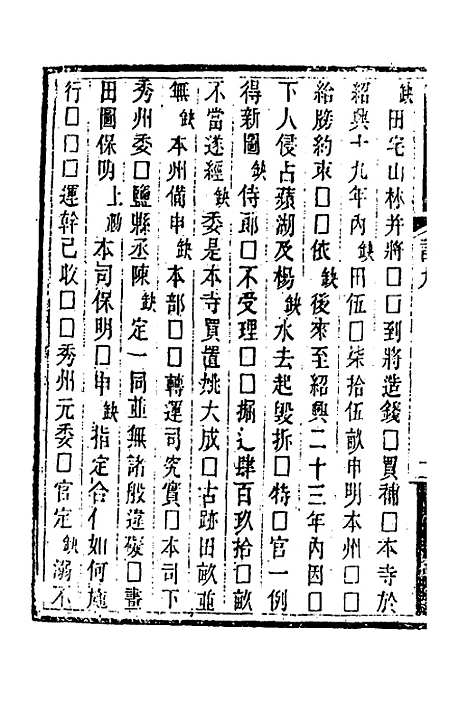 缺田宅山林并將□□到將造錢□買補□本寺於
紹興十九年內缺田伍□柒拾伍畝申明本州□□
給牓約束□□依缺後來至紹興二十三年內因□
下人侵占蘋湖及楊缺水去起毀拆□特□官一例
得新圖缺侍郎□不受理□□搠之肆百玖拾□畝
不當遂經缺委是本寺買置姚大成□古跡田畝並
無缺本州備申缺本部□□轉運司究實□本司下
秀州委□鹽縣丞陳缺定一同並無諸般違礙□畫
田圖保明上缺本司保明□申缺指定合作如何施
行□□□運幹已收□□秀州元委□官定缺溺不